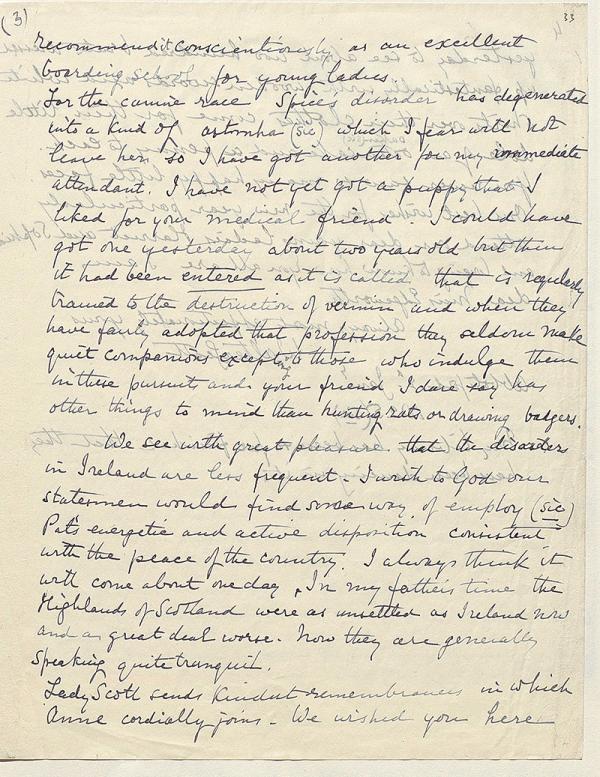 (3)
33
recommend it conscientiously as an excellent
boarding school for young ladies
For the canine race Spice's disorder has degenerated
into a kind of astmha (sic) which I fear will not
leave her, so I have got another for my immediate
attendant. I have not yet got a puppy that I
liked for your medical friend. I could have
got one yesterday about two years old but then
it had been entered as it is called that is regularly
trained to the destruction of vermin and when they
have fairly adopted that profession they seldom make
quiet companions excepting to those who indulge them
in these pursuits and your friend I dare say has
other things to mind than hunting rats or drawing badgers.
We see with great pleasure that the disorders
in Ireland are less frequent. I wish to God our
statesmen would find some way of employ (sic)
Pat's energetic and active disposition consistent
with the peace of the country. I always think it
will come about one day. In my father's time the
Highlands of Scotland were as unsettled as Ireland now
and a great deal worse. Now they are generally
speaking quite tranquil.
Lady Scott sends kindest remembrances in which
Anne cordially joins - We wished you here